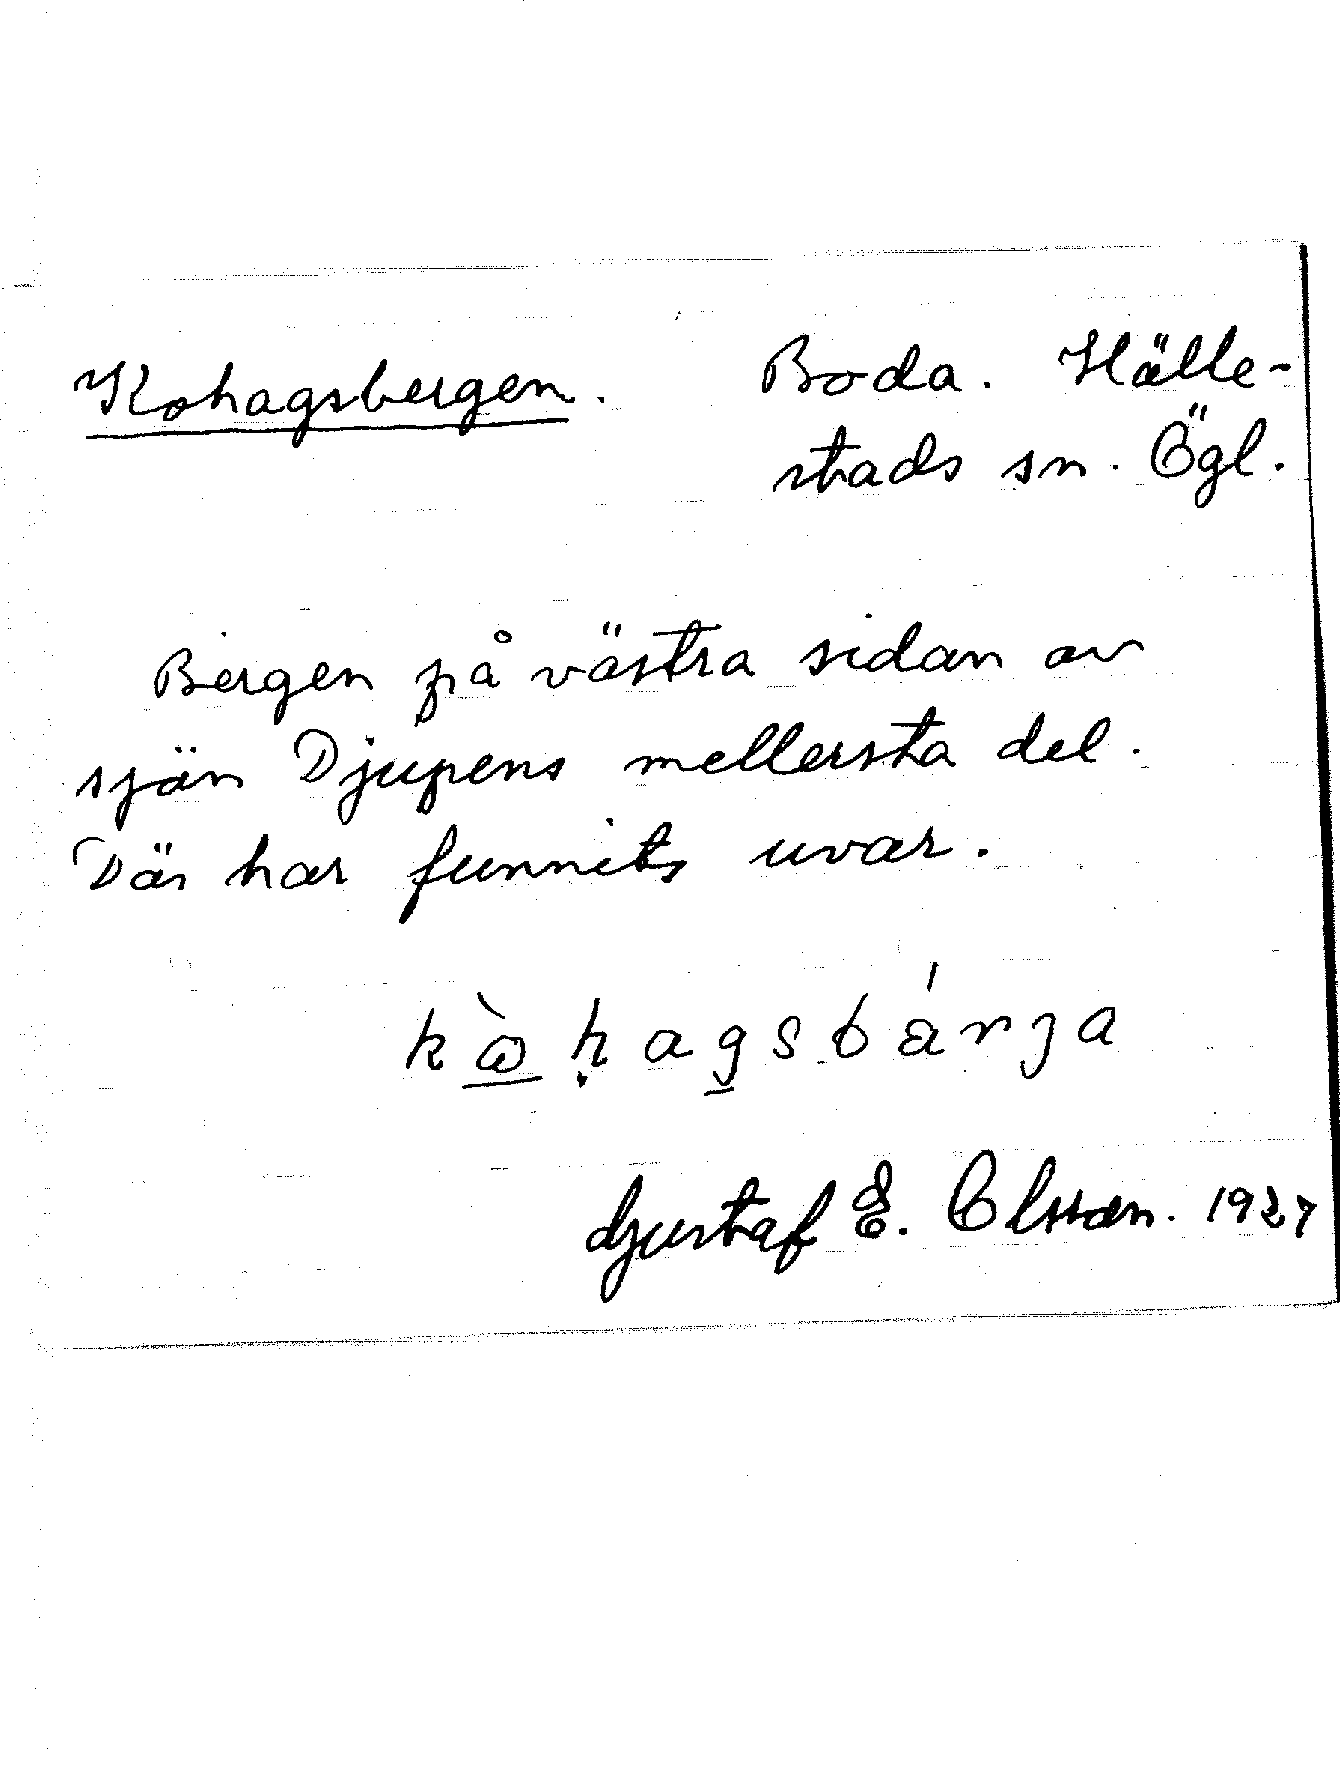 Kohagsbergen. Boda. Hälle-
stads sn. Ögl.
Bergen på västra sidan av
sjön Djupens mellersta del.
Där har funnits uvar.
Gustaf E. Olsson. 1927